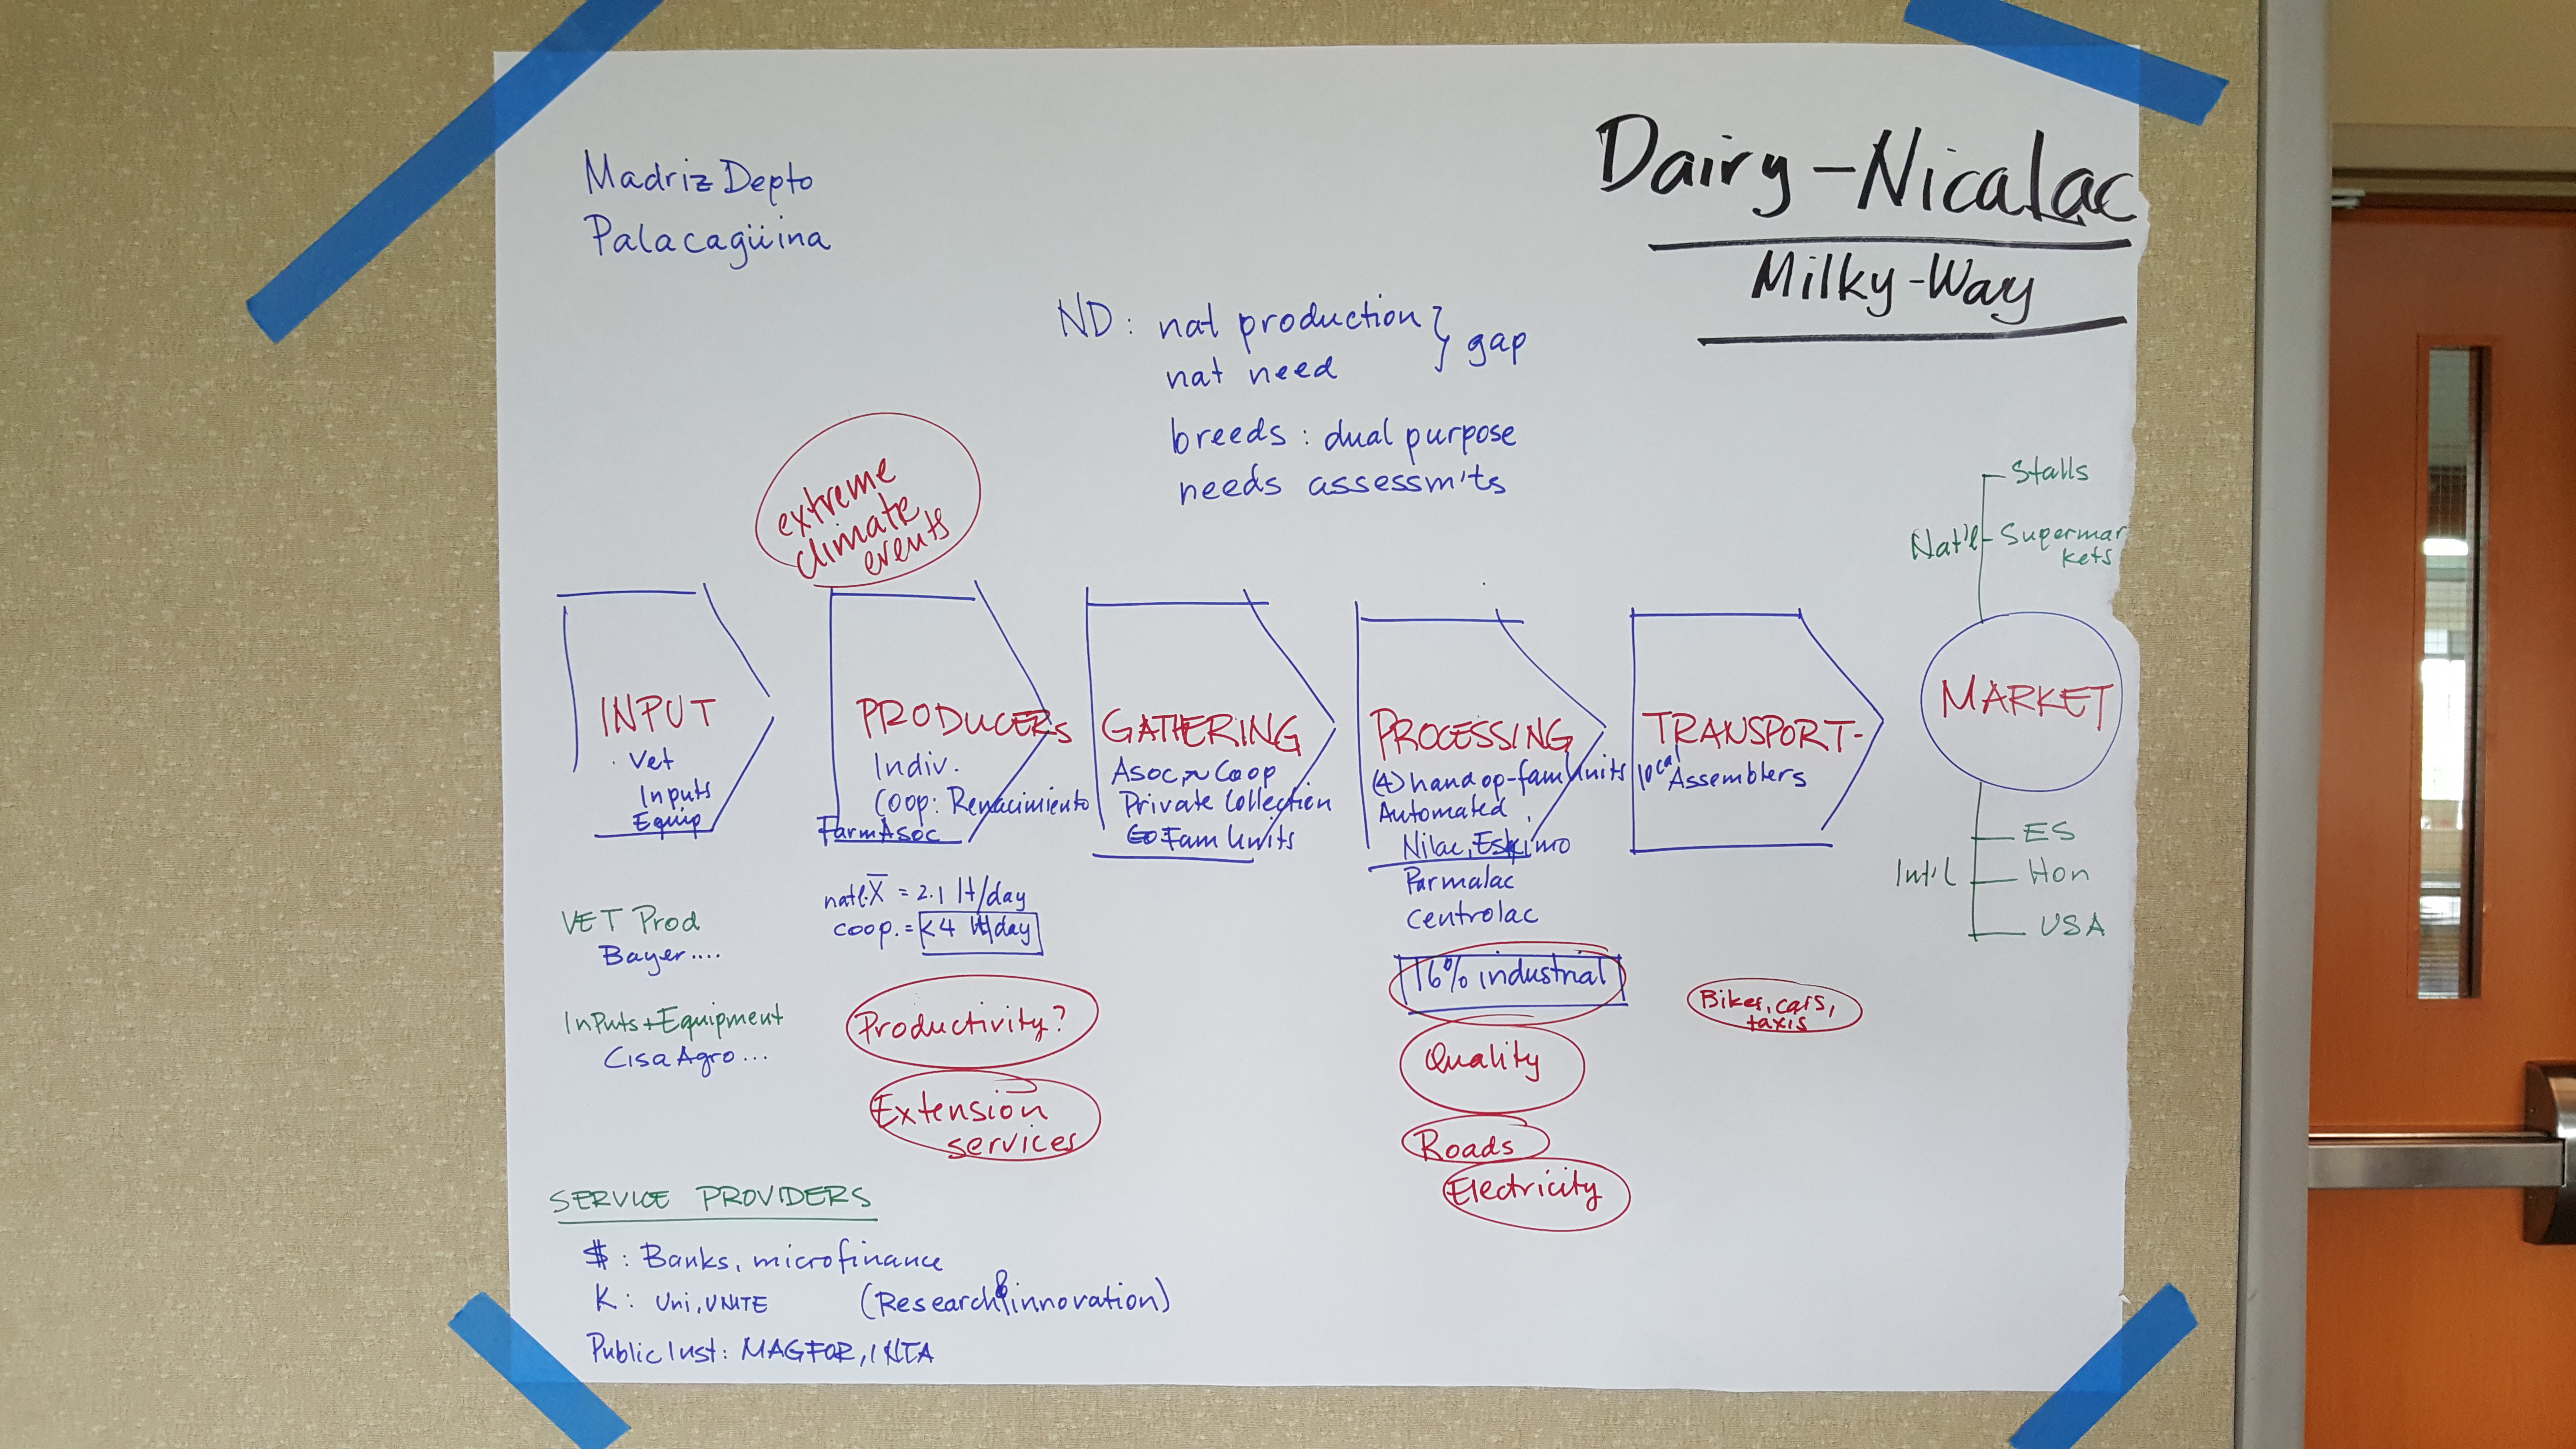 Dairy-Nicalac
Milky-Way
Madriz Depto
Palacagüina
ND: nat production } gap
nat need
breeds: dual purpose
needs assessm'ts
extreme
climate
events
INPUT
Vet
Inputs
Equip
VET Prod
Bayer....
Inputs+Equipment
Cisa Agro...
PRODUCERs
Indiv.
Coop: Renacimiento
FarmAsoc
natl. X̅ = 2.1 lt/day
coop. = <4 lt/day
Productivity?
Extension
services
GATHERING
Asoc, Coop
Private Collection
Fam Units
PROCESSING
(4) hand op-fam Units
Automated
Nilac, Eskimo
Parmalac
Centrolac
16% industrial
Quality
Roads
Electricity
TRANSPORT-
local Assemblers
Bikes, cars,
taxis
Stalls
Nat'l Supermar
kets
MARKET
ES
Int'l Hon
USA
SERVICE PROVIDERS
$: Banks, microfinance
K: Uni, UNITE (Research & innovation)
Public Inst: MAGFOR, INTA